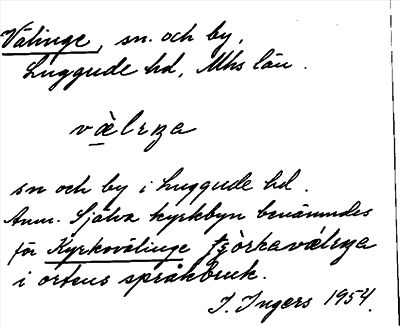 Välinge, sn. och by,
Luggude hd, Mhs län.
vä̀lıŋa
sn och by i Luggude hd.
Anm. Själva kyrkbyn benämndes
för Kyrkovälinge
i ortens språkbruk.
I. Ingers 1954.